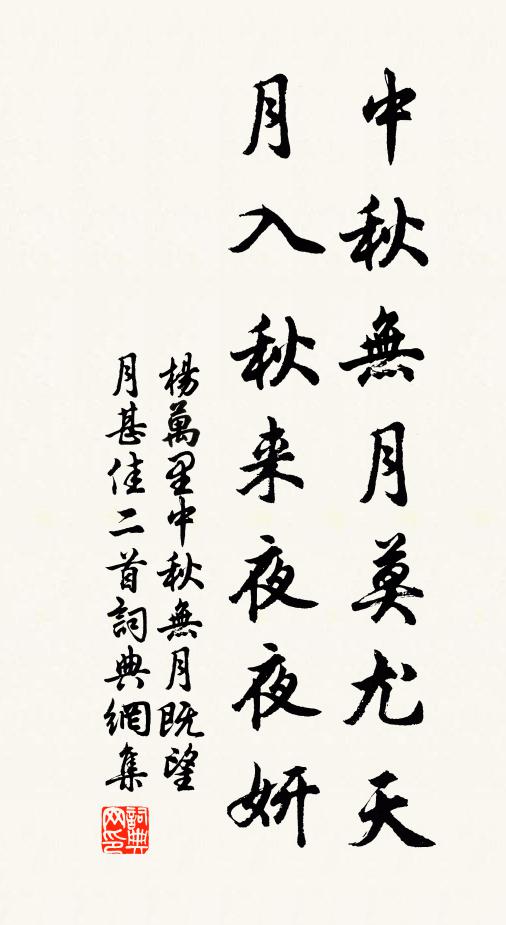 中秋無月莫尤天
月入秋来夜夜妍
楊萬里中秋無月既望
月甚佳二首詞典網集
詞典
网印